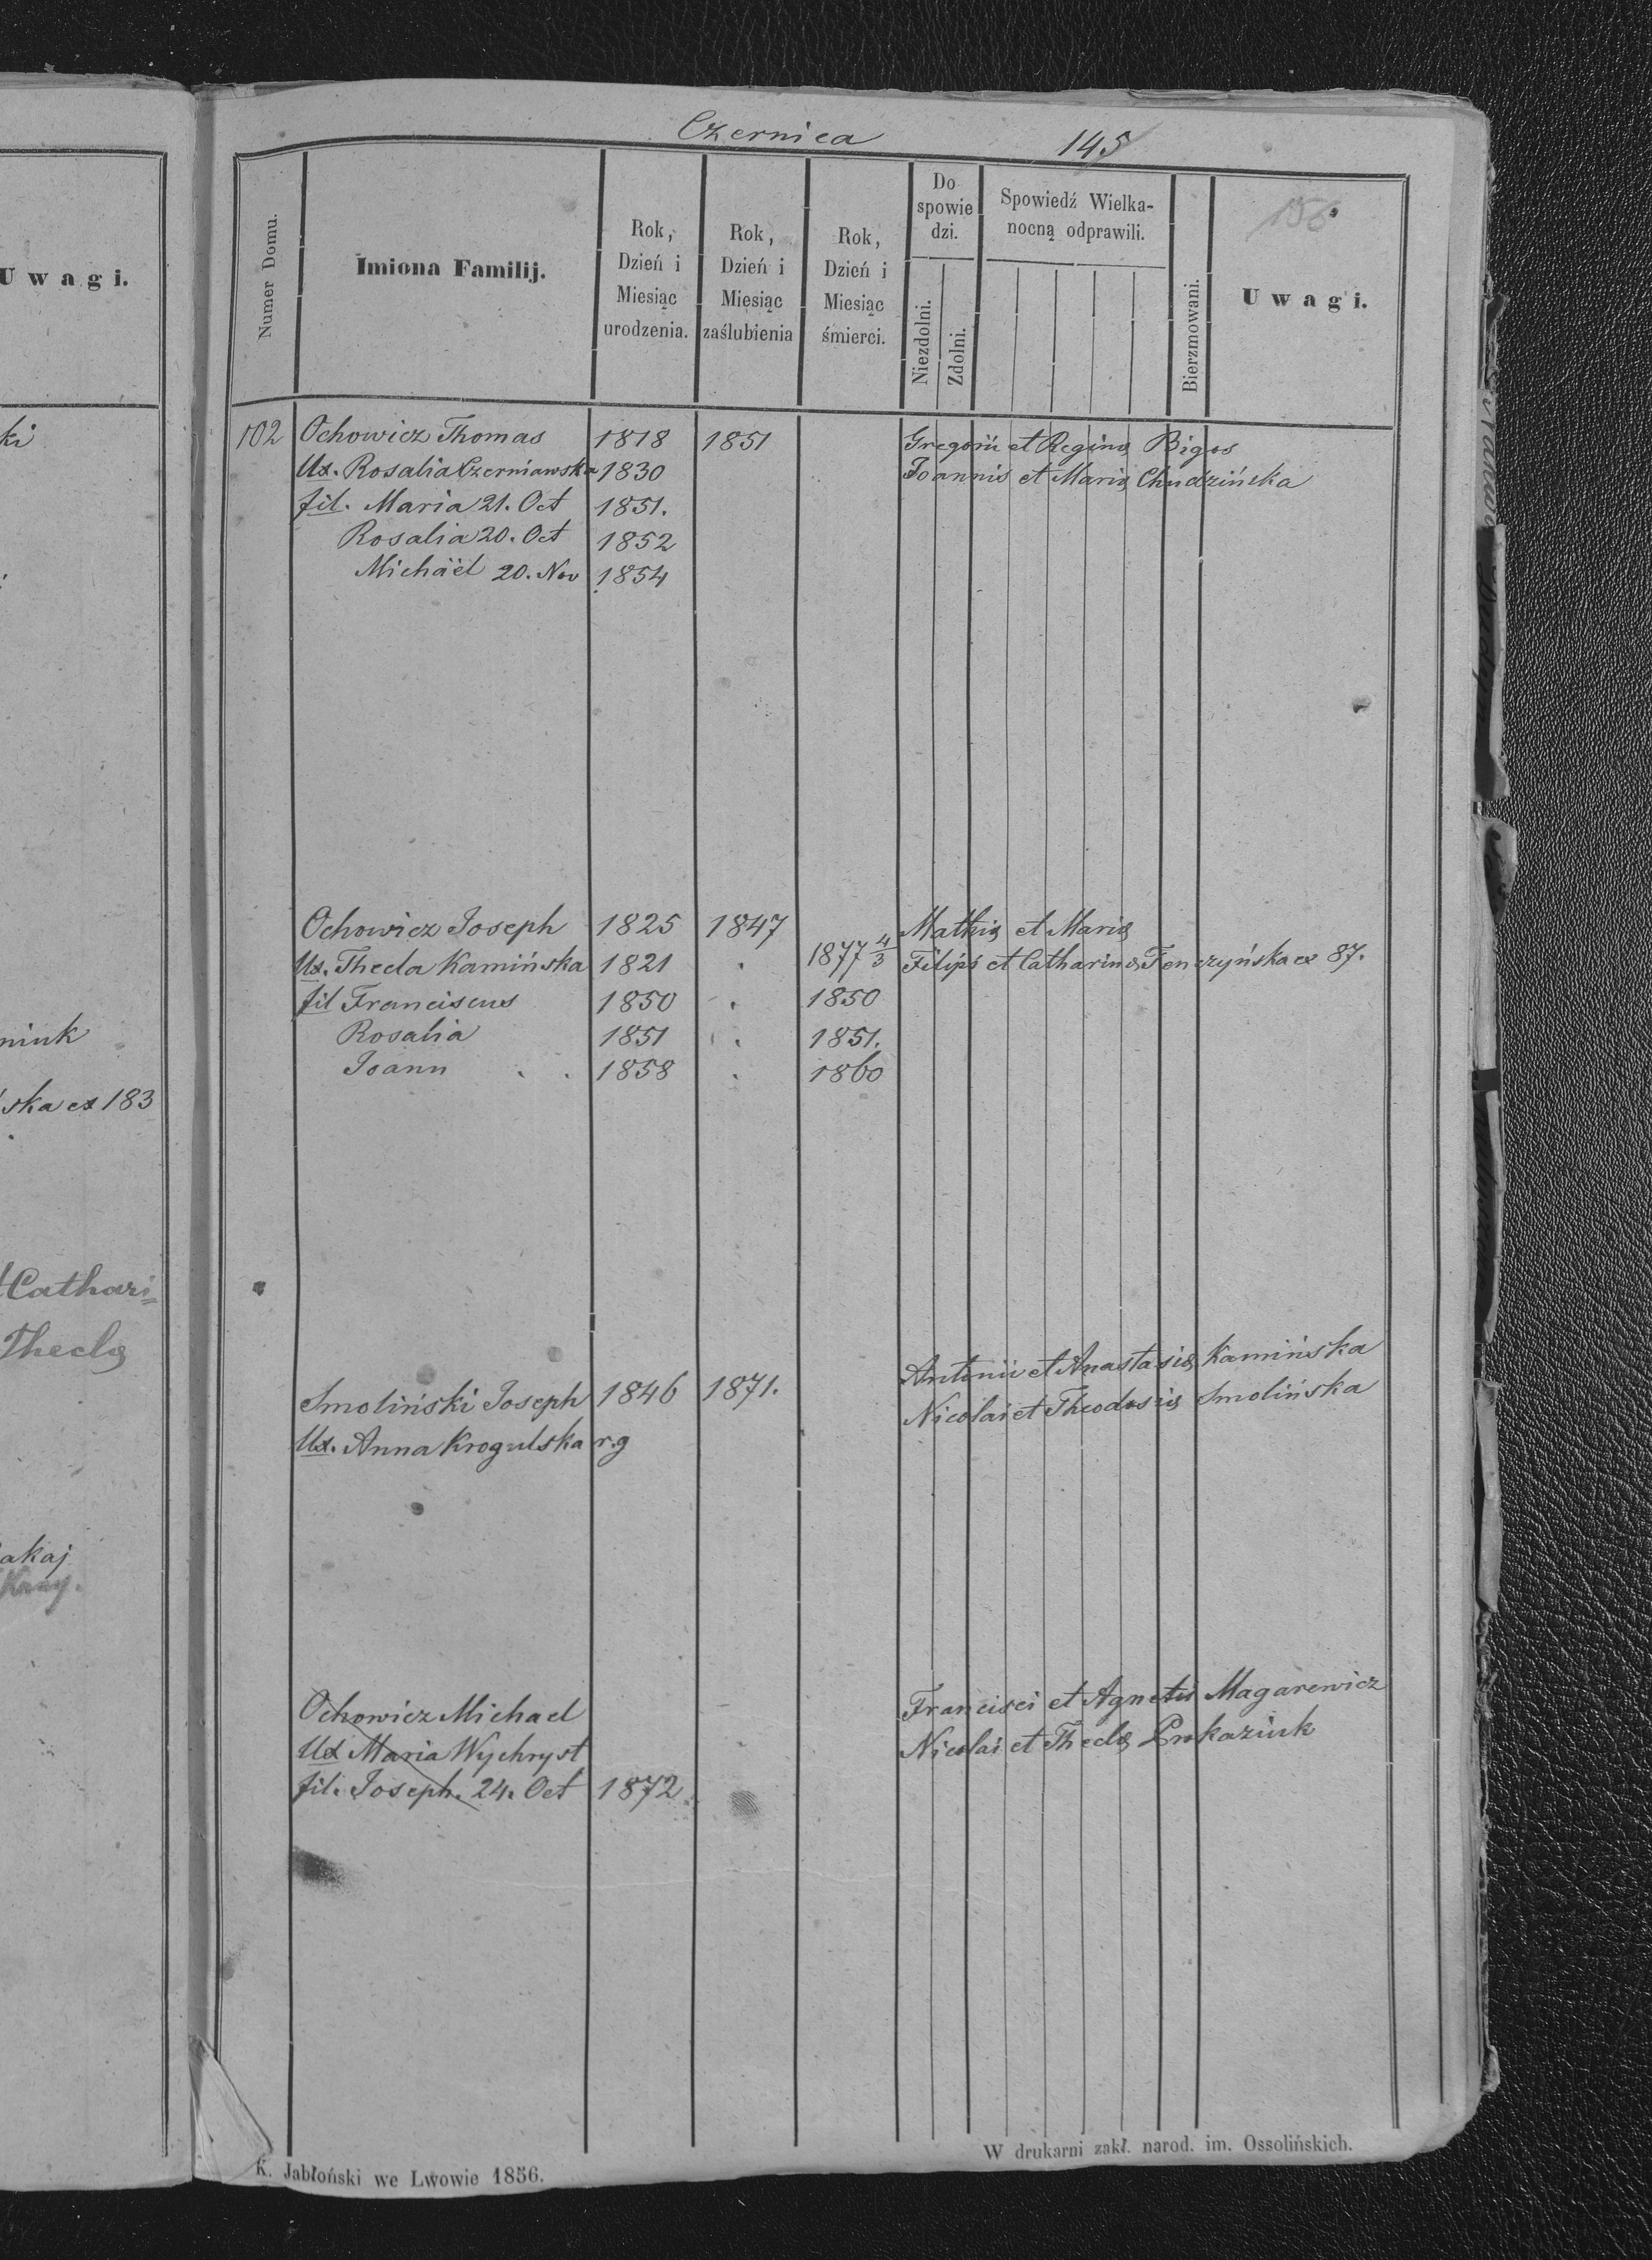 Czernica 145
156
Numer Domu.
Imiona Familij.
Rok, Dzień i Miesiąc urodzenia.
Rok, Dzień i Miesiąc zaślubienia
Rok, Dzień i Miesiąc śmierci.
Do spowie dzi.
Niezdolni.
Zdolni.
Spowiedź Wielka-
nocną odprawili.
Bierzmowani.
U w a g i.
U w a g i.
102 Ochowicz Thomas 1818 1851 Gregorii et Reginę Bigos
Ux. Rosalia Czerniawska 1830 Joannis et Marię Chudzińska
fil. Maria 21. Oct 1851.
Rosalia 20. Oct 1852
Michäel 20. Nov 1854
Ochowicz Joseph 1825 1847 Mathię et Marię
Ux. Thecla Kamińska 1821 1877 4/3 Filipi et Catharinę Tenczyńska ex 87.
fil Franciscus 1850 1850
Rosalia 1851 1851.
Joann 1858 1860
Smoliński Joseph 1846 1871. Antonii et Anastasię Kamińska
Ux. Anna Krogulska r.g Nicolai et Theodosię Smolińska
Ochowicz Michael Francisci et Agnetis Magarewicz
Ux Maria Wychryst Nicolai et Theclę Prokaziuk
fil. Joseph. 24. Oct 1872
ki
niuk
ska ex 183
Cathari=
Theclę
akaj
K. Jabłoński we Lwowie 1856.
W drukarni zakł. narod. im. Ossolińskich.